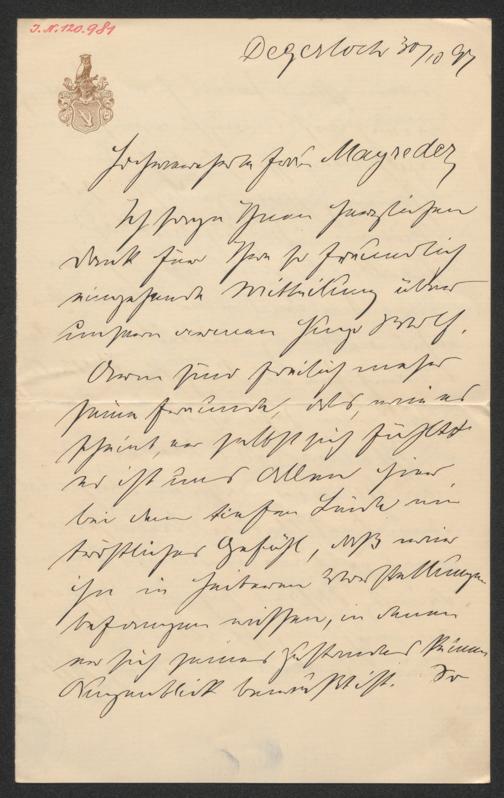 J.N. 120.981
Degerloch 30/10 97
Hochverehrte Frau Mayreder,
Ich sage Ihnen herzlichen
Dank für Ihre so freundlich
eingehende Mittheilung über
unseren armen Hugo Wolf.
Arm sind freilich mehr
seine Freunde, als, wie es
scheint, er selbst sich fühlt
es ist uns Allen hier
bei dem tiefen Leide ein
tröstliches Gefühl, daß wir
ihn in heiteren Vorstellungen
befangen wissen, in denen
er sich seines Zustandes keinen
Augenblick bewußt ist. So